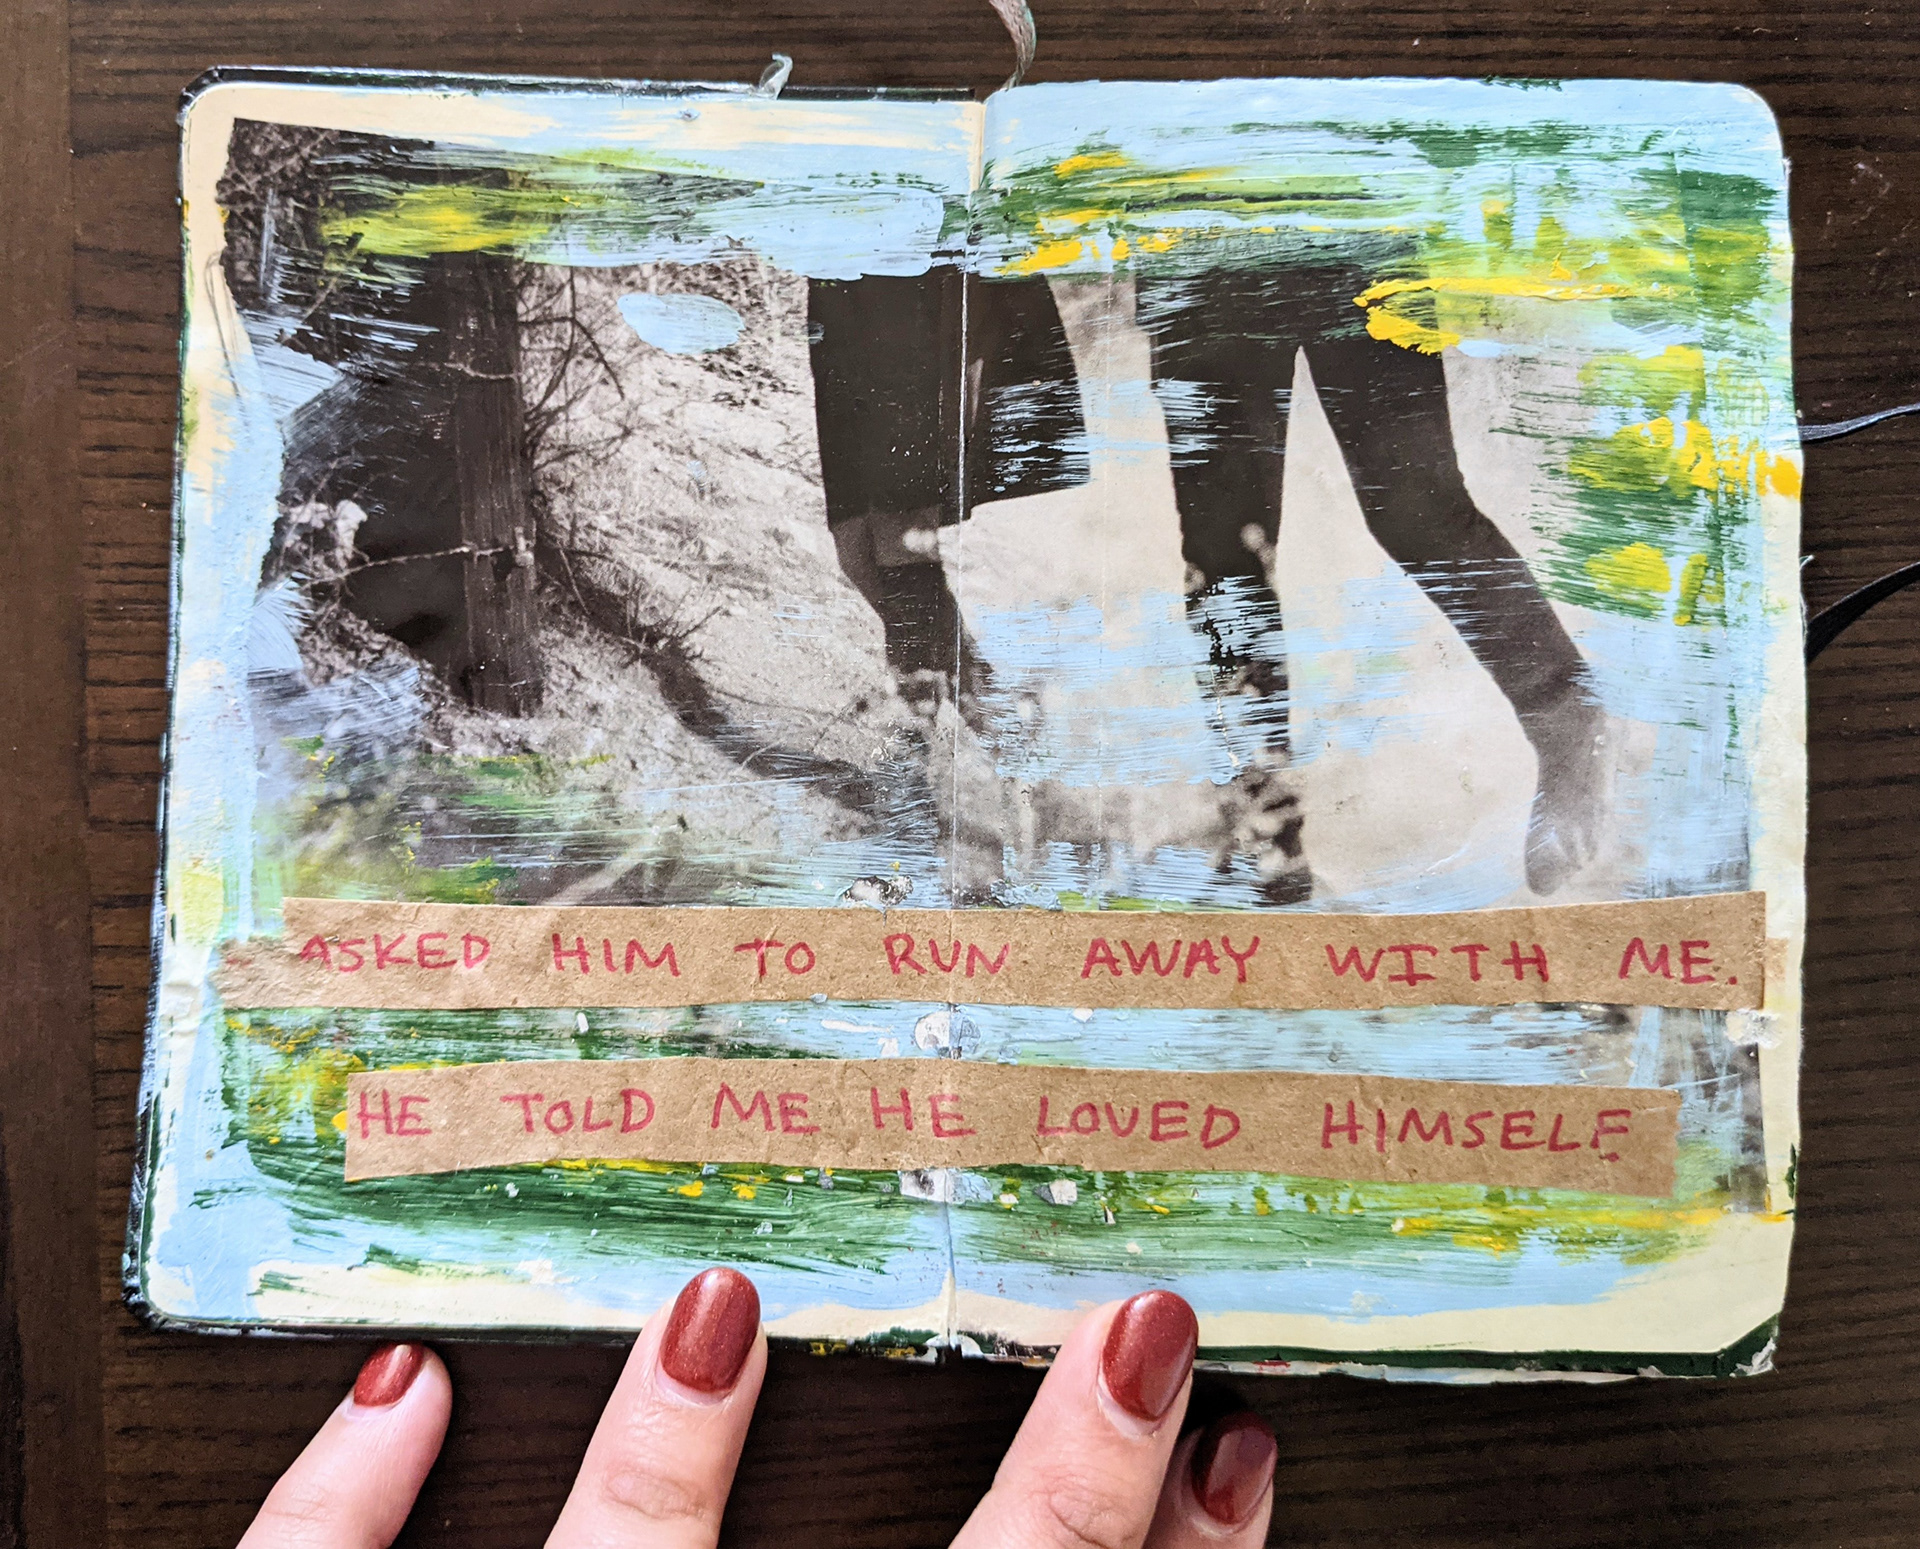 ASKED HIM TO RUN AWAY WITH ME.
HE TOLD ME HE LOVED HIMSELF